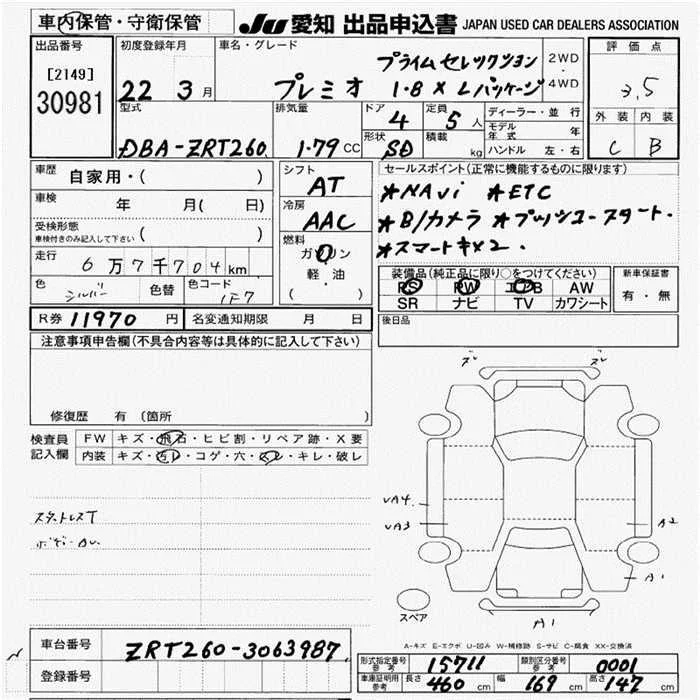 車内保管・守衛保管
JU 愛知 出品申込書 JAPAN USED CAR DEALERS ASSOCIATION
出品番号
[2149]
30981
初度登録年月
22 3月
車名・グレード
プライムセレクション
プレミオ 1.8 X Lパッケージ
2WD
・
4WD
評価点
3.5
外装 内装
C B
型式
DBA-ZRT260
排気量
1.79 CC
ドア
4
定員
5人
形状
SD
積載
kg
ディーラー・並行
モデル年式 年
ハンドル 左・右
車歴 自家用・( )
車検 年 月( 日)
受検形態
車検付きのみ記入して下さい ( )
走行 6万7千704km
色 シルバー 色替 色コード 1F7
シフト
AT
冷房
AAC
燃料
ガソリン
軽・油
( )
セールスポイント(正常に機能するものに限ります)
★NAVi ★ETC
★B/カメラ ★プッシュスタート.
★スマートキー×2.
装備品(純正品に限り○をつけてください)
PS PW エアB AW
SR ナビ TV カワシート
新車保証書
有・無
R券 11970 円 名変通知期限 月 日
後日品
注意事項申告欄(不具合内容等は具体的に記入して下さい)
修復歴 有 (箇所
検査員記入欄
FW キズ・飛石・ヒビ割・リペア跡・X要
内装 キズ・汚レ・コゲ・穴・スレ・キレ・破レ
UA4
UA3
A2
A1
A1
スペア
A-キズ E-エクボ U-凹み W-補修跡 S-サビ C-腐食 XX-交換済
車台番号 ZRT260-3063987
登録番号
形式指定番号 参考 15711 類別区分番号 参考 0001
車庫証明用 参考 長さ 460 cm 幅 169 cm 高さ 147 cm